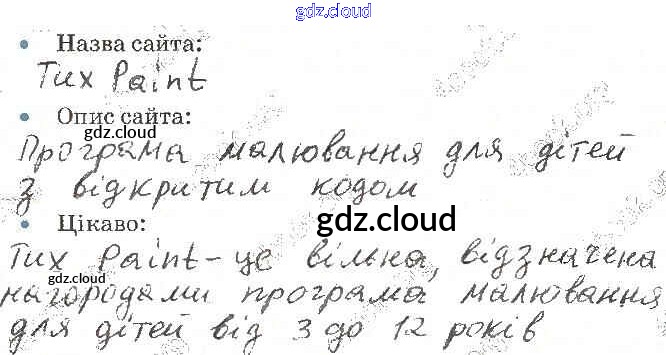 gdz.cloud
• Назва сайта:
Tux Paint
• Опис сайта:
gdz.cloud gdz.cloud
Програма малювання для дітей
з відкритим кодом
• Цікаво: gdz.cloud
gdz.cloud
Tux Paint - це вільна, відзначена
gdz.cloud gdz.cloud
нагородами програма малювання
для дітей від 3 до 12 років